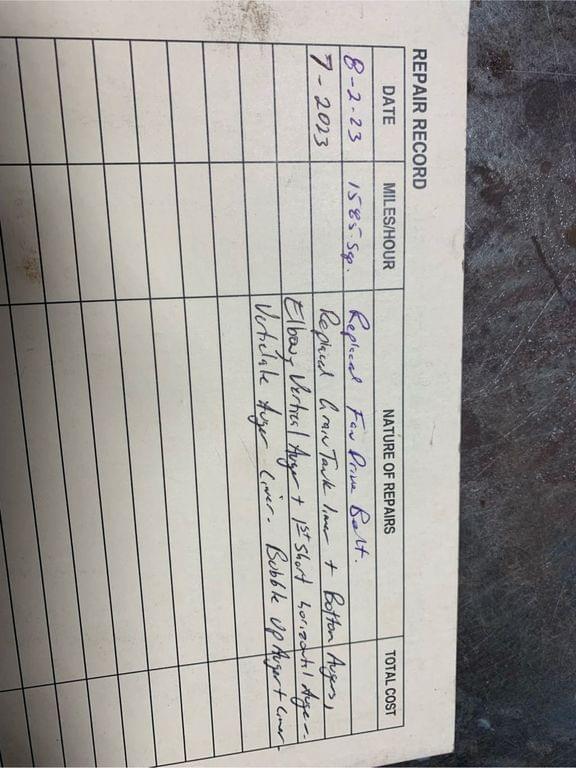 REPAIR RECORD
DATE MILES/HOUR NATURE OF REPAIRS TOTAL COST
8-2-23 1585 Sep. Replaced Fan Drive Belt.
7-2023 Replaced Grain Tank liner + Bottom Augers,
Elbow, Vertical Auger + 1st short horizontil Auger.
Verticle Auger Liner. Bubble Up Auger + Liner